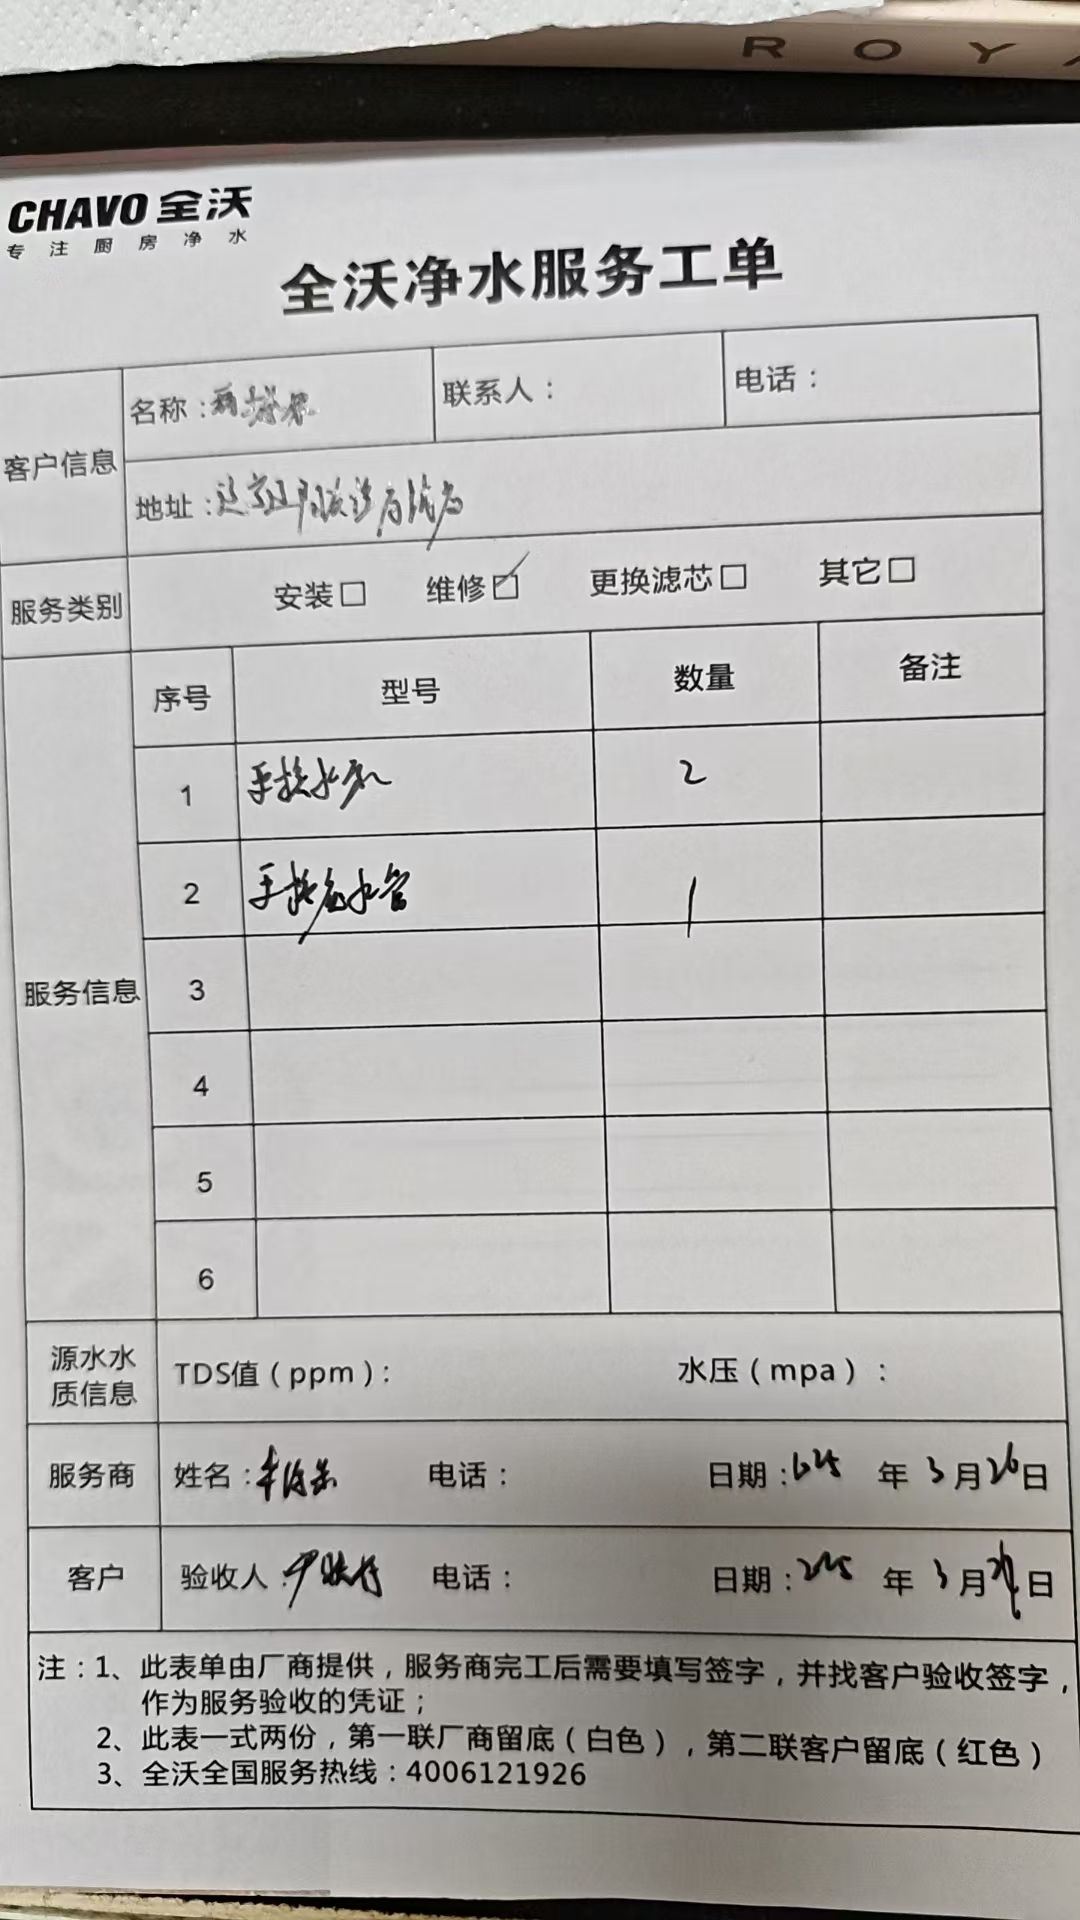 ROY
CHAVO 全沃
专注厨房净水
全沃净水服务工单
客户信息
名称：
联系人：
电话：
地址：
服务类别
安装□ 维修☑ 更换滤芯□ 其它□
服务信息
序号 型号 数量 备注
1 水 2
2 水管 1
3
4
5
6
源水水质信息
TDS值（ppm）： 水压（mpa）：
服务商 姓名： 电话： 日期： 年 3月26日
客户 验收人： 电话： 日期：2025 年 3月 日
注：1、此表单由厂商提供，服务商完工后需要填写签字，并找客户验收签字，
作为服务验收的凭证；
2、此表一式两份，第一联厂商留底（白色），第二联客户留底（红色）
3、全沃全国服务热线：4006121926